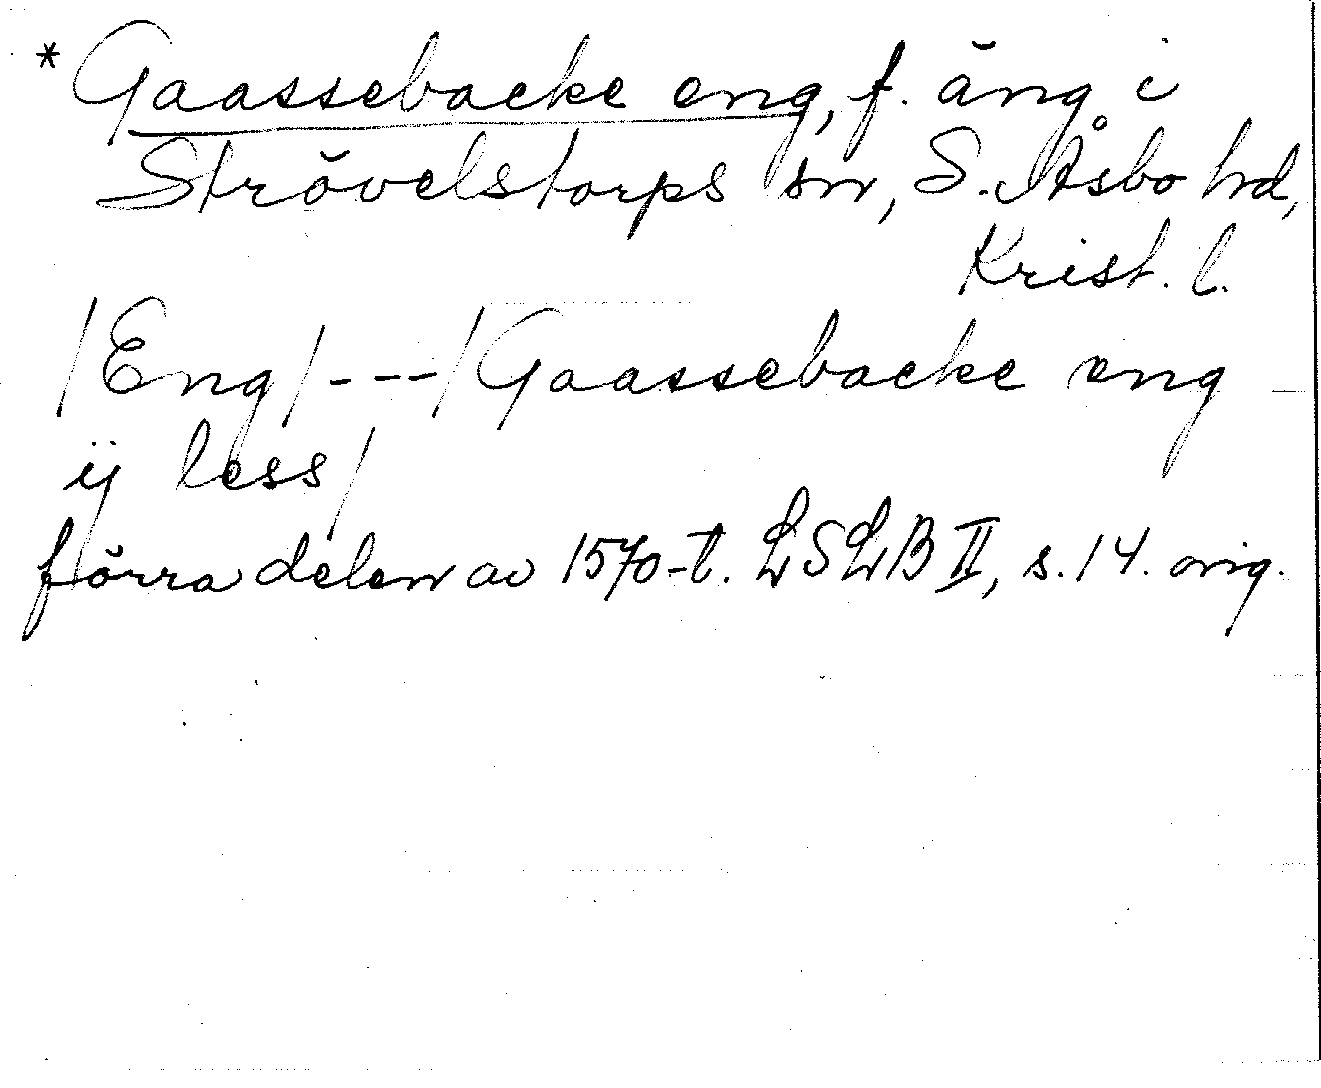 *Gaassebacke eng, f. äng i
Strövelstorps sn, S. Åsbo hd,
Krist. l.
/Eng/---/Gaassebacke eng
ij less/
förra delen av 1570-t. LSLB II, s. 14. orig.